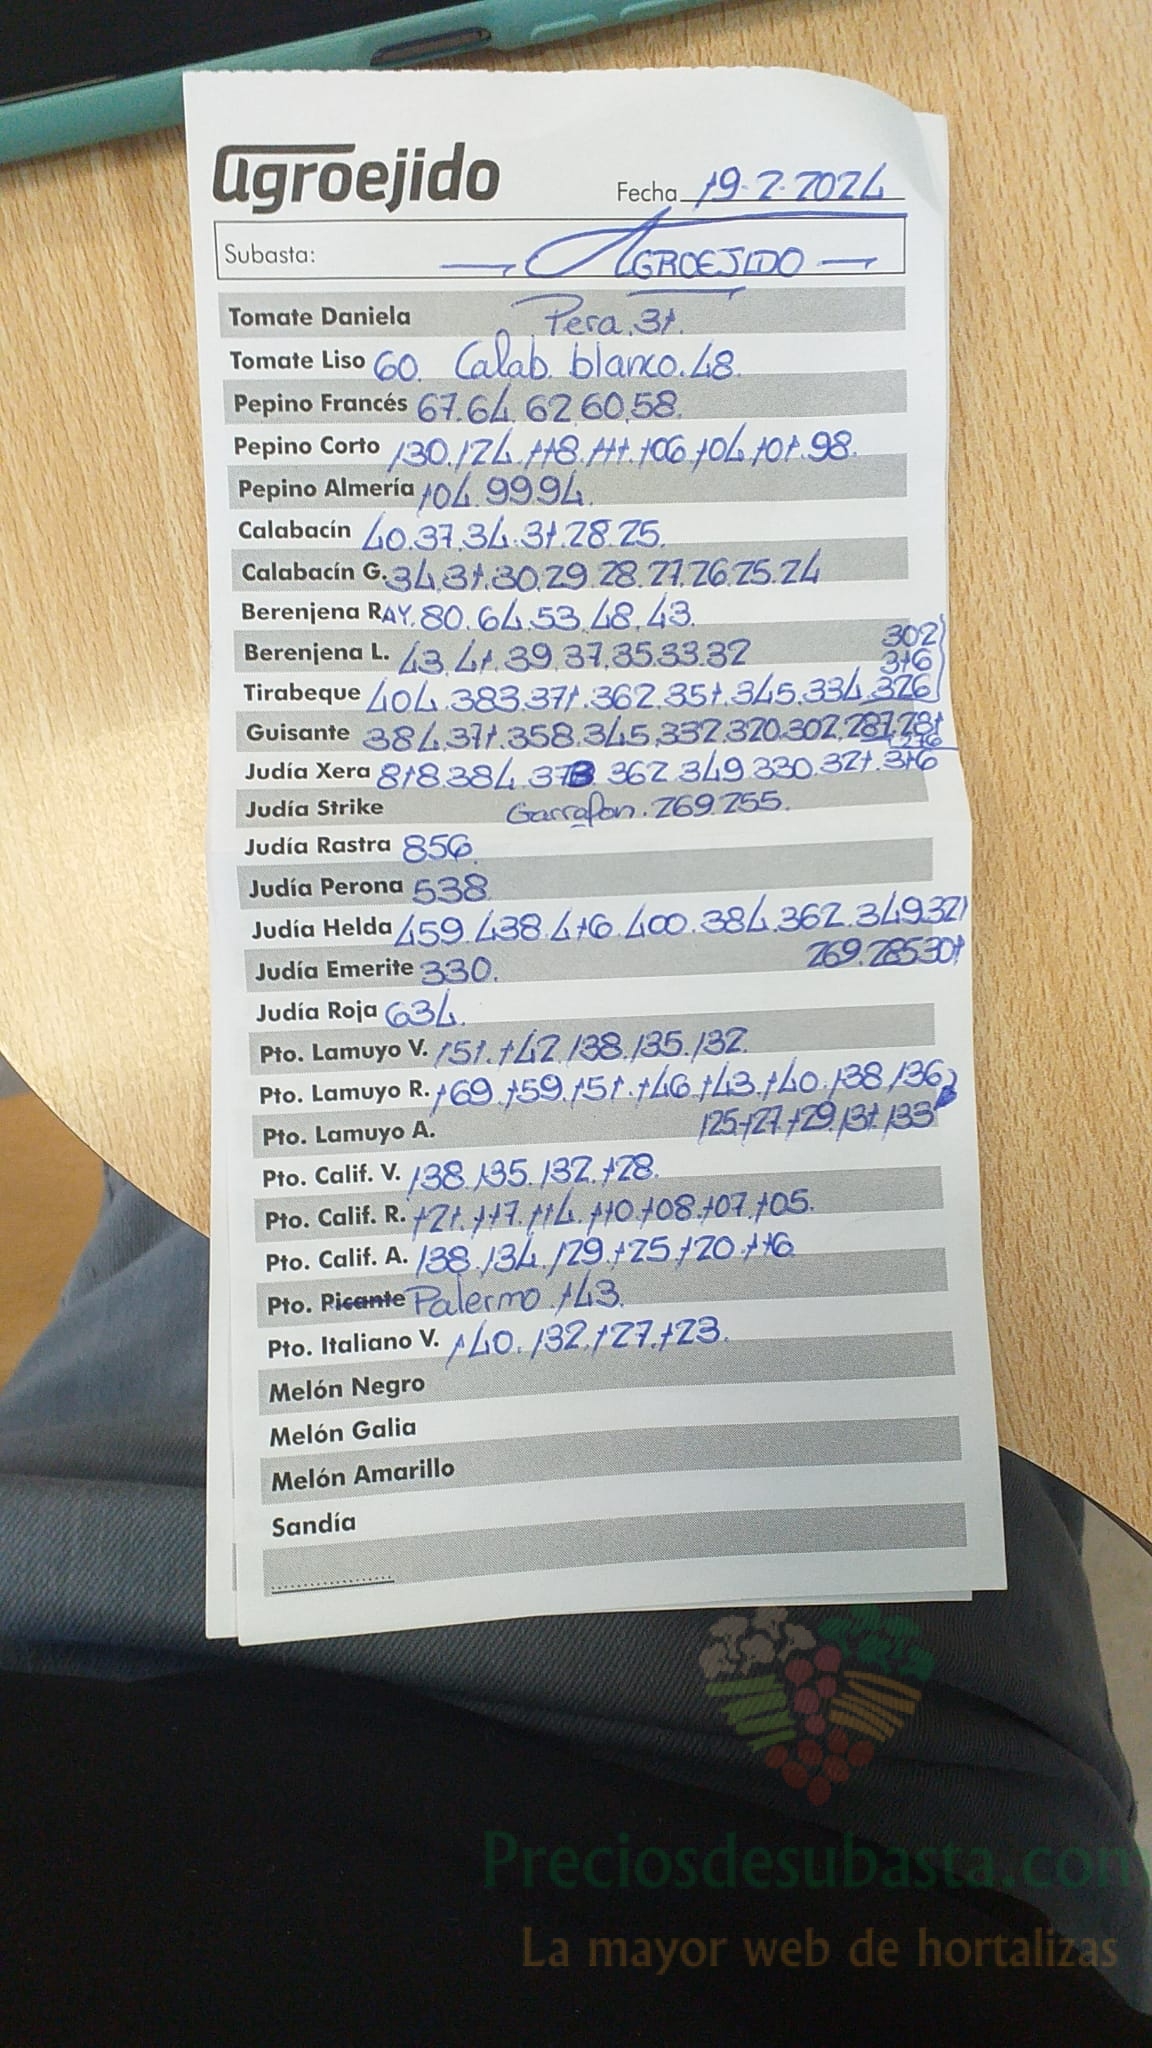 agroejido
Fecha 19-2-2024
Subasta: — AGROEJIDO —
Tomate Daniela Pera.31.
Tomate Liso 60. Calab. blanco.48.
Pepino Francés 67.64.62.60.58.
Pepino Corto 130.124.118.111.106.104.101.98.
Pepino Almería 104.99.94.
Calabacín 40.37.34.31.28.25.
Calabacín G. 34.31.30.29.28.27.26.25.24
Berenjena RAY. 80.64.53.48.43.
Berenjena L. 43.41.39.37.35.33.32
302
316
Tirabeque 404.383.371.362.351.345.334.326
Guisante 384.371.358.345.332.320.302.287.281
276
Judía Xera 818.384.373.362.349.330.321.316
Judía Strike Garrafon.269.255.
Judía Rastra 856.
Judía Perona 538.
Judía Helda 459.438.416.400.384.362.349.321
Judía Emerite 330. 269.285.301
Judía Roja 634.
Pto. Lamuyo V. 151.142.138.135.132.
Pto. Lamuyo R. 169.159.151.146.143.140.138.136
Pto. Lamuyo A. 125.127.129.131.133
Pto. Calif. V. 138.135.132.128.
Pto. Calif. R. 121.117.114.110.108.107.105.
Pto. Calif. A. 138.134.129.125.120.116.
Pto. Picante Palermo.143.
Pto. Italiano V. 140.132.127.123.
Melón Negro
Melón Galia
Melón Amarillo
Sandía
Preciosdesubasta.com
La mayor web de hortalizas